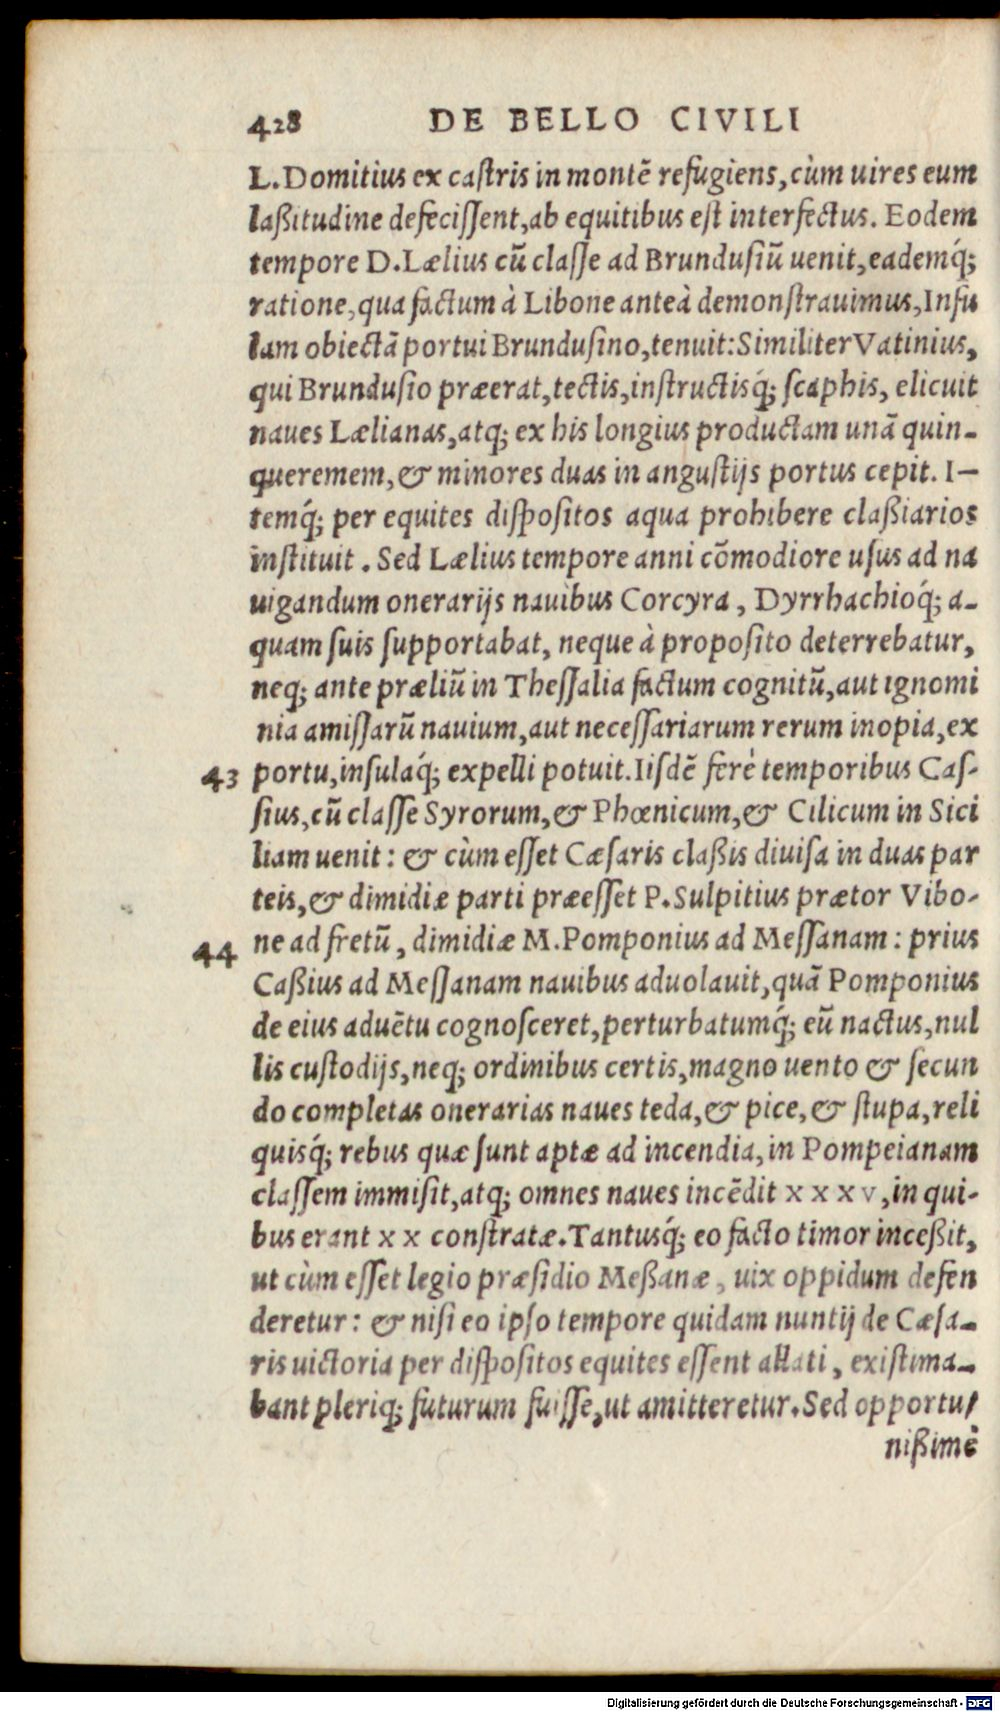 428 DE BELLO CIVILI
L. Domitius ex castris in montē refugiens, cùm uires eum
laßitudine defecissent, ab equitibus est interfectus. Eodem
tempore D. Lælius cū classe ad Brundusiū uenit, eademq́;
ratione, qua factum à Libone anteà demonstrauimus, Insu
lam obiectā portui Brundusino, tenuit: Similiter Vatinius,
qui Brundusio præerat, tectis, instructisq́; scaphis, elicuit
naues Lælianas, atq; ex his longius productam unā quin-
queremem, & minores duas in angustijs portus cepit. I-
temq́; per equites dispositos aqua prohibere claßiarios
instituit. Sed Lælius tempore anni cōmodiore usus ad na
uigandum onerarijs nauibus Corcyra, Dyrrhachioq́; a-
quam suis supportabat, neque à proposito deterrebatur,
neq; ante præliū in Thessalia factum cognitū, aut ignomi
nia amissarū nauium, aut necessariarum rerum inopia, ex
43 portu, insulaq́; expelli potuit. Iisdē ferè temporibus Cas-
sius, cū classe Syrorum, & Phœnicum, & Cilicum in Sici
liam uenit: & cùm esset Cæsaris claßis diuisa in duas par
teis, & dimidiæ parti præesset P. Sulpitius prætor Vibo-
44 ne ad fretū, dimidiæ M. Pomponius ad Messanam: prius
Caßius ad Messanam nauibus aduolauit, quā Pomponius
de eius aduētu cognosceret, perturbatumq́; eū nactus, nul
lis custodijs, neq; ordinibus certis, magno uento & secun
do completas onerarias naues teda, & pice, & stupa, reli
quisq́; rebus quæ sunt aptæ ad incendia, in Pompeianam
classem immisit, atq; omnes naues incēdit x x x v, in qui-
bus erant x x constratæ. Tantusq́; eo facto timor inceßit,
ut cùm esset legio præsidio Meßanæ, uix oppidum defen
deretur: & nisi eo ipso tempore quidam nuntij de Cæsa-
ris uictoria per dispositos equites essent allati, existima-
bant pleriq; futurum fuisse, ut amitteretur. Sed opportu-
nißimè
Digitalisierung gefördert durch die Deutsche Forschungsgemeinschaft - DFG